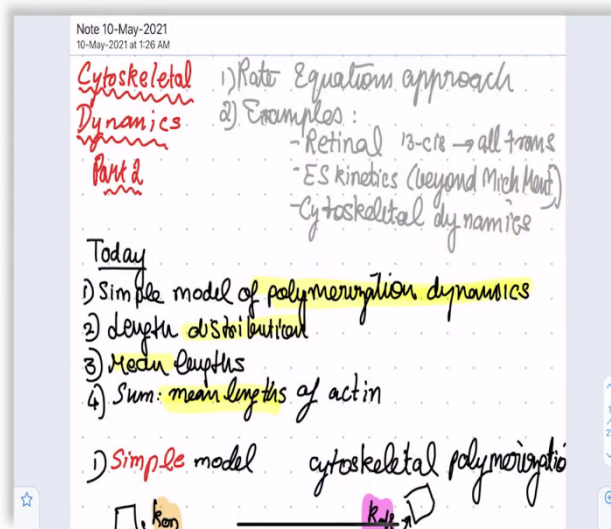 Note 10-May-2021
10-May-2021 at 1:26 AM
Cytoskeletal
Dynamics
Part 2
1) Rate Equation approach
2) Examples :
- Retinal 13-cis → all trans
- ES kinetics (beyond Mich Ment)
- Cytoskeletal dynamics
Today
1) Simple model of polymerization dynamics
2) Length distribution
3) Mean lengths
4) Sum: mean lengths of actin
1) Simple model cytoskeletal polymerizatio
kon koff